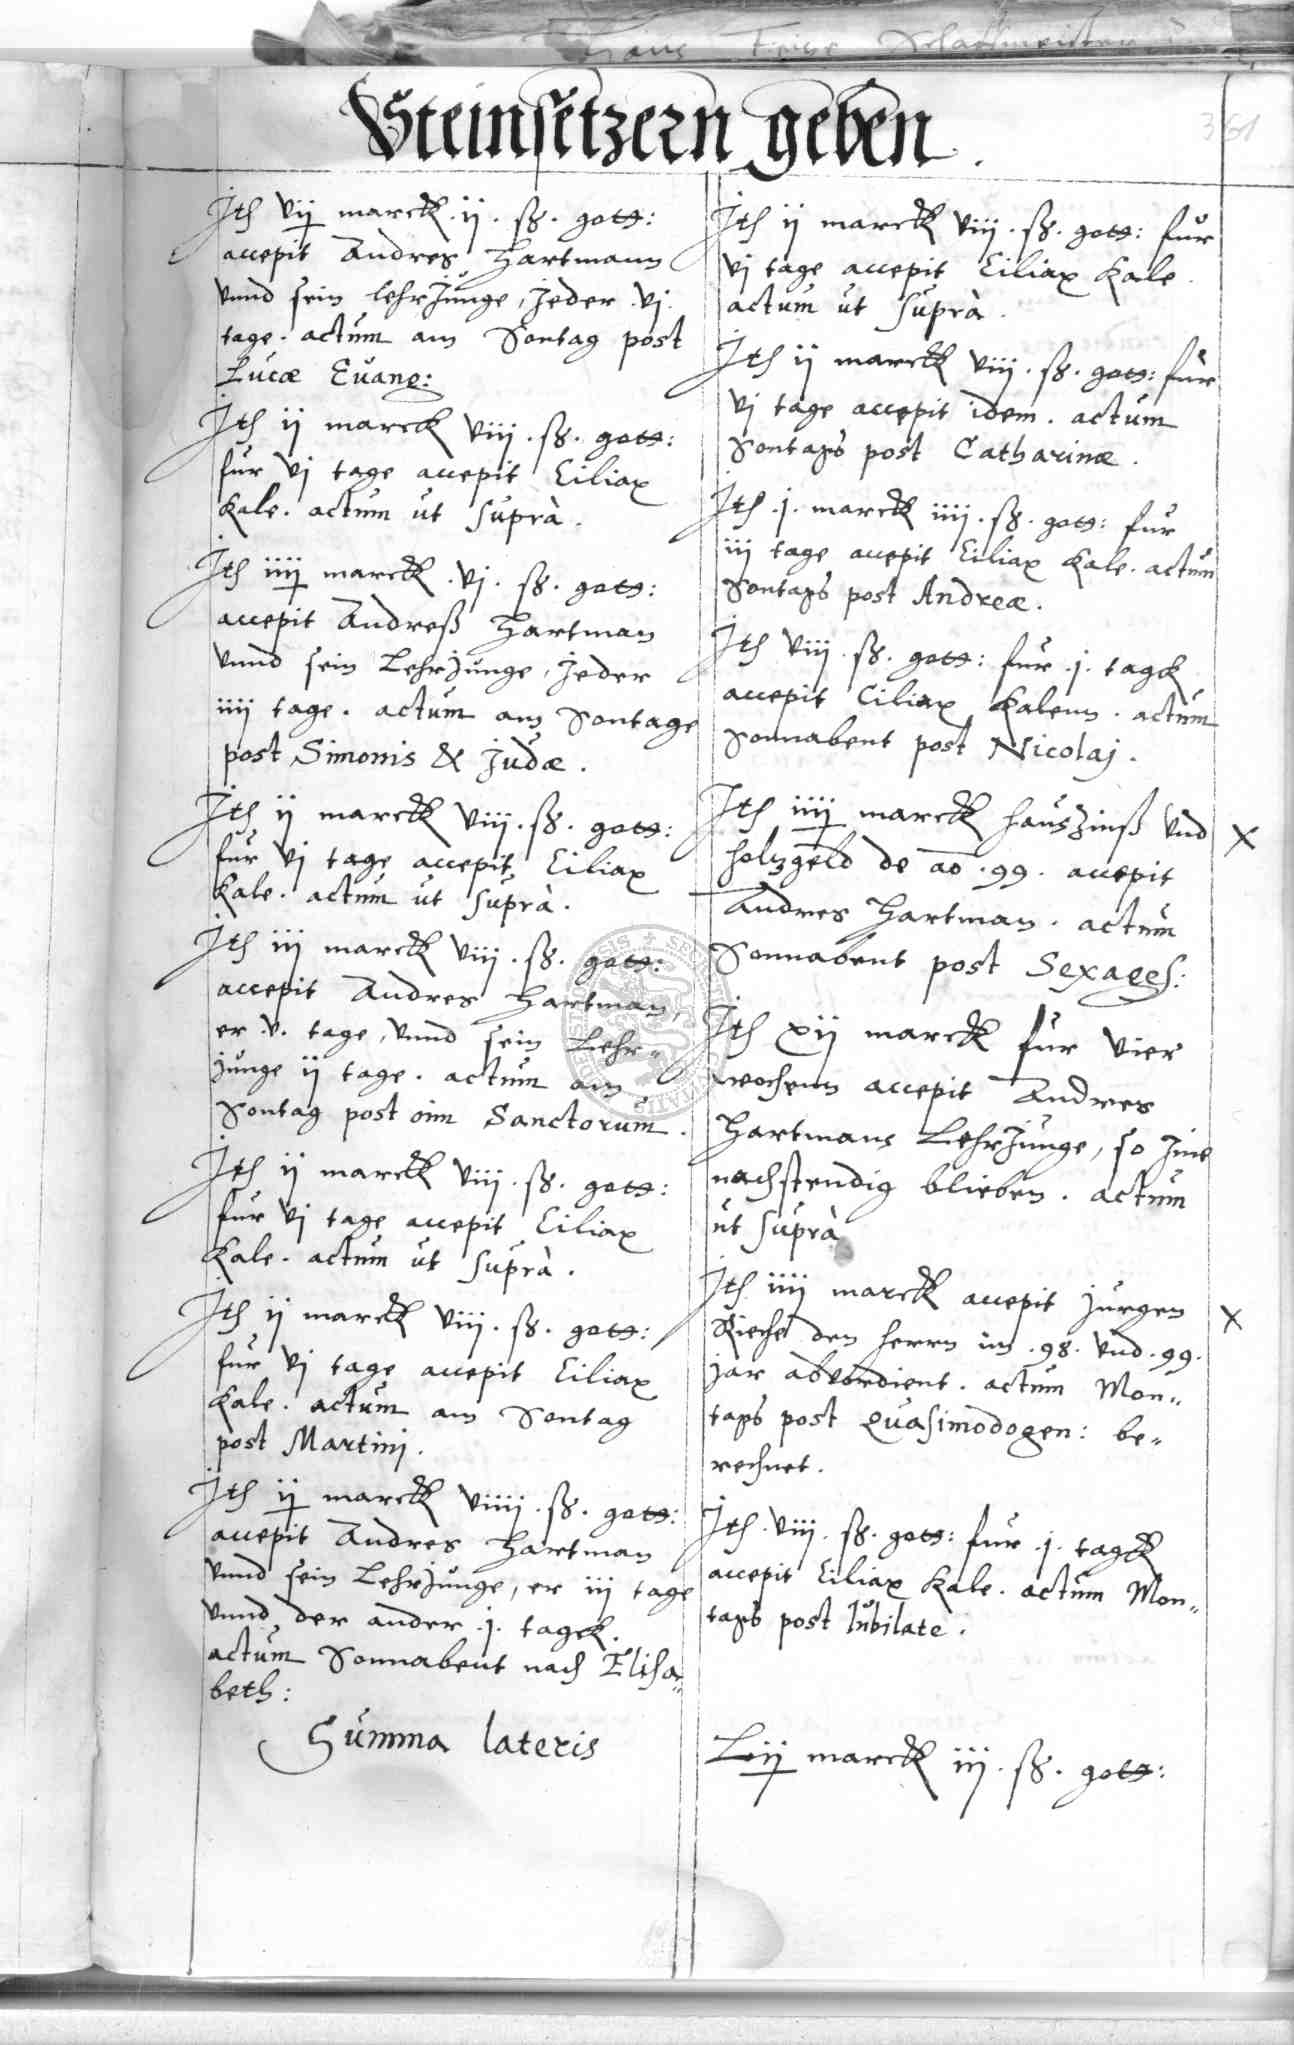 Steinsetzern geben.
361
Jth vij marck ij. ß. gott:
accepit Andres Hartmann
vnnd sein lehrJunge, Jeder .vj.
tage. actum am Sontag post
Lucæ Euang:
Jth ij marck viij. ß. gott:
fur vj tage accepit Ciliax
Kale. actum ut suprà.
Jth iiij marck .vj. ß. gott:
accepit Andreß Hartman
vnnd sein LehrJunge, Jeder
iiij tage. actum am Sontage
post Simonis & Judæ.
Jth ij marck viij. ß. gott:
fur vj tage accepit Ciliax
Kale. actum ut suprà.
Jth iij marck viij. ß. gott:
accepit Andres Hartman,
er .v. tage, vnnd sein Lehr-
junge ij tage. actum am
Sontag post oim Sanctorum.
Jth ij marck viij. ß. gott:
fur vj tage accepit Ciliax
Kale. actum ut suprà.
Jth ij marck viij. ß. gott:
fur vj tage accepit Ciliax
Kale. actum am Sontag
post Martinj.
Jth ij marck viiij. ß. gott:
accepit Andres Hartman
vnnd sein LehrJunge, er iij tage
vnnd der ander .j. tagck.
actum Sonnabent nach Elisa-
beth:
Summa lateris
Jth ij marck viij. ß. gott: fur
vj tage accepit Ciliax Kale.
actum ut suprà.
Jth ij marck viij. ß. gott: fur
vj tage accepit idem. actum
Sontags post Catharinæ.
Jth .j. marck iiij. ß. gott: fur
iij tage accepit Ciliax Kale. actum
Sontags post Andreæ.
Jth viij. ß. gott: fur .j. tagck
accepit Ciliax Kalenn. actum
Sonnabent post Nicolaj.
Jth iiij marck hausZinß vnd X
holtzgeld de ao .99. accepit
Andres Hartman. actum
Sonnabent post Sexages:
Jth xij marck fur vier
wochenn accepit Andres
Hartmans LehrJunge, so Jme
nachstendig blieben. actum
ut suprà
Jth iiij marck accepit Jurgen X
Rieche den herrn im .98. vnd .99.
jar abverdient. actum Mon-
tags post Quasimodogen: be-
rechnet.
Jth .viij. ß. gott: fur .j. tagck
accepit Ciliax Kale. actum Mon-
tags post Iubilate.
Lij marck iij. ß. gott: